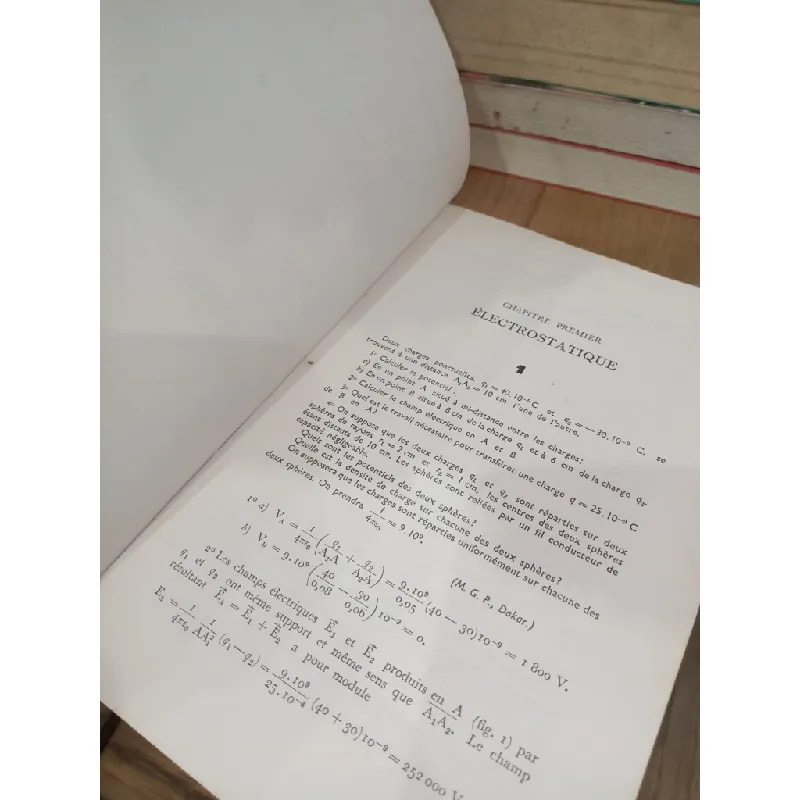 CHAPITRE PREMIER
ÉLECTROSTATIQUE
1
Deux charges ponctuelles, q₁ = 40.10⁻⁹ C et q₂ = — 30.10⁻⁹ C, se
trouvent à une distance A₁A₂ = 10 cm l'une de l'autre.
1º Calculer le potentiel :
a) En un point A situé à mi-distance entre les charges;
b) En un point B situé à 8 cm de la charge q₁ et à 6 cm de la charge q₂.
2º Calculer le champ électrique en A et B.
3º Quel est le travail nécessaire pour transférer une charge q = 25.10⁻⁹ C
de B en A?
4º On suppose que les deux charges q₁ et q₂ sont réparties sur deux
sphères de rayons r₁ = 2 cm et r₂ = 1 cm, les centres des deux sphères
étant distants de 10 cm. Les sphères sont reliées par un fil conducteur de
capacité négligeable.
Quels sont les potentiels des deux sphères?
Quelle est la densité de charge sur chacune des deux sphères?
On supposera que les charges sont réparties uniformément sur chacune des
deux sphères. On prendra 1/4πε₀ = 9.10⁹.
(M. G. P., Dakar.)
1º a) V_A = 1/4πε₀ (q₁/A₁A + q₂/A₂A) = 9.10⁹/0,05 (40 — 30)10⁻⁹ = 1 800 V.
b) V_B = 9.10⁹ (40/0,08 — 30/0,06) 10⁻⁹ = 0.
2º Les champs électriques E⃗₁ et E⃗₂ produits en A (fig. 1) par
q₁ et q₂ ont même support et même sens que A₁A₂. Le champ
résultant E⃗₃ = E⃗₁ + E⃗₂ a pour module
E₃ = 1/4πε₀ 1/AA₁² (q₁ — q₂) = 9.10⁹/25.10⁻⁴ (40 + 30)10⁻⁹ = 252 000 V